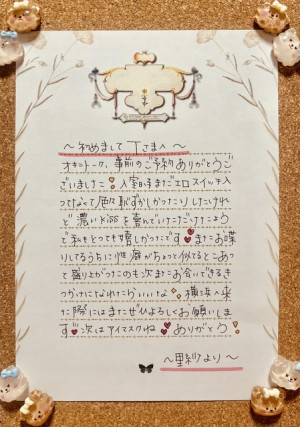 〜初めまして Tさまへ〜
オキニトーク、事前のご予約ありがとうご
ざいました!入室時まだエロスイッチ入
ってなくて照れ恥ずかしかったりしたけれ
ど濃いKissを喜んでいただけたよう
で私もとっても嬉しかったです またお喋
りしてるうちに性癖がちょっと似てるとこあっ
て盛り上がったのも次またお会いできるき
っかけになれたらいいな 横浜へ来
た際にはまたぜひよろしくお願いしま
す 次はアイマスクね ありがとう!
〜里紗より〜